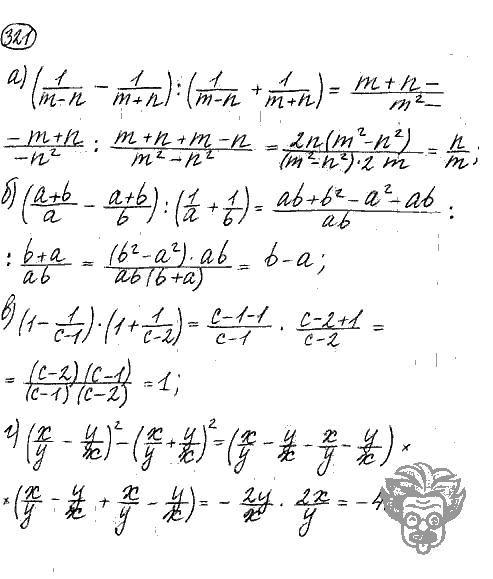 321
а) (1/(m-n) - 1/(m+n)) : (1/(m-n) + 1/(m+n)) = (m+n-)/(m²-
(-m+n)/(-n²) : (m+n+m-n)/(m²-n²) = (2n(m²-n²))/((m²-n²)·2m) = n/m;
б) ((a+b)/a - (a+b)/b) : (1/a + 1/b) = (ab+b²-a²-ab)/(ab) :
: (b+a)/(ab) = ((b²-a²)·ab)/(ab(b+a)) = b-a;
в) (1 - 1/(c-1))·(1 + 1/(c-2)) = (c-1-1)/(c-1) · (c-2+1)/(c-2) =
= ((c-2)(c-1))/((c-1)(c-2)) = 1;
г) (x/y - y/x)² - (x/y + y/x)² = (x/y - y/x - x/y - y/x) ×
× (x/y - y/x + x/y - y/x) = - 2y/x · 2x/y = -4